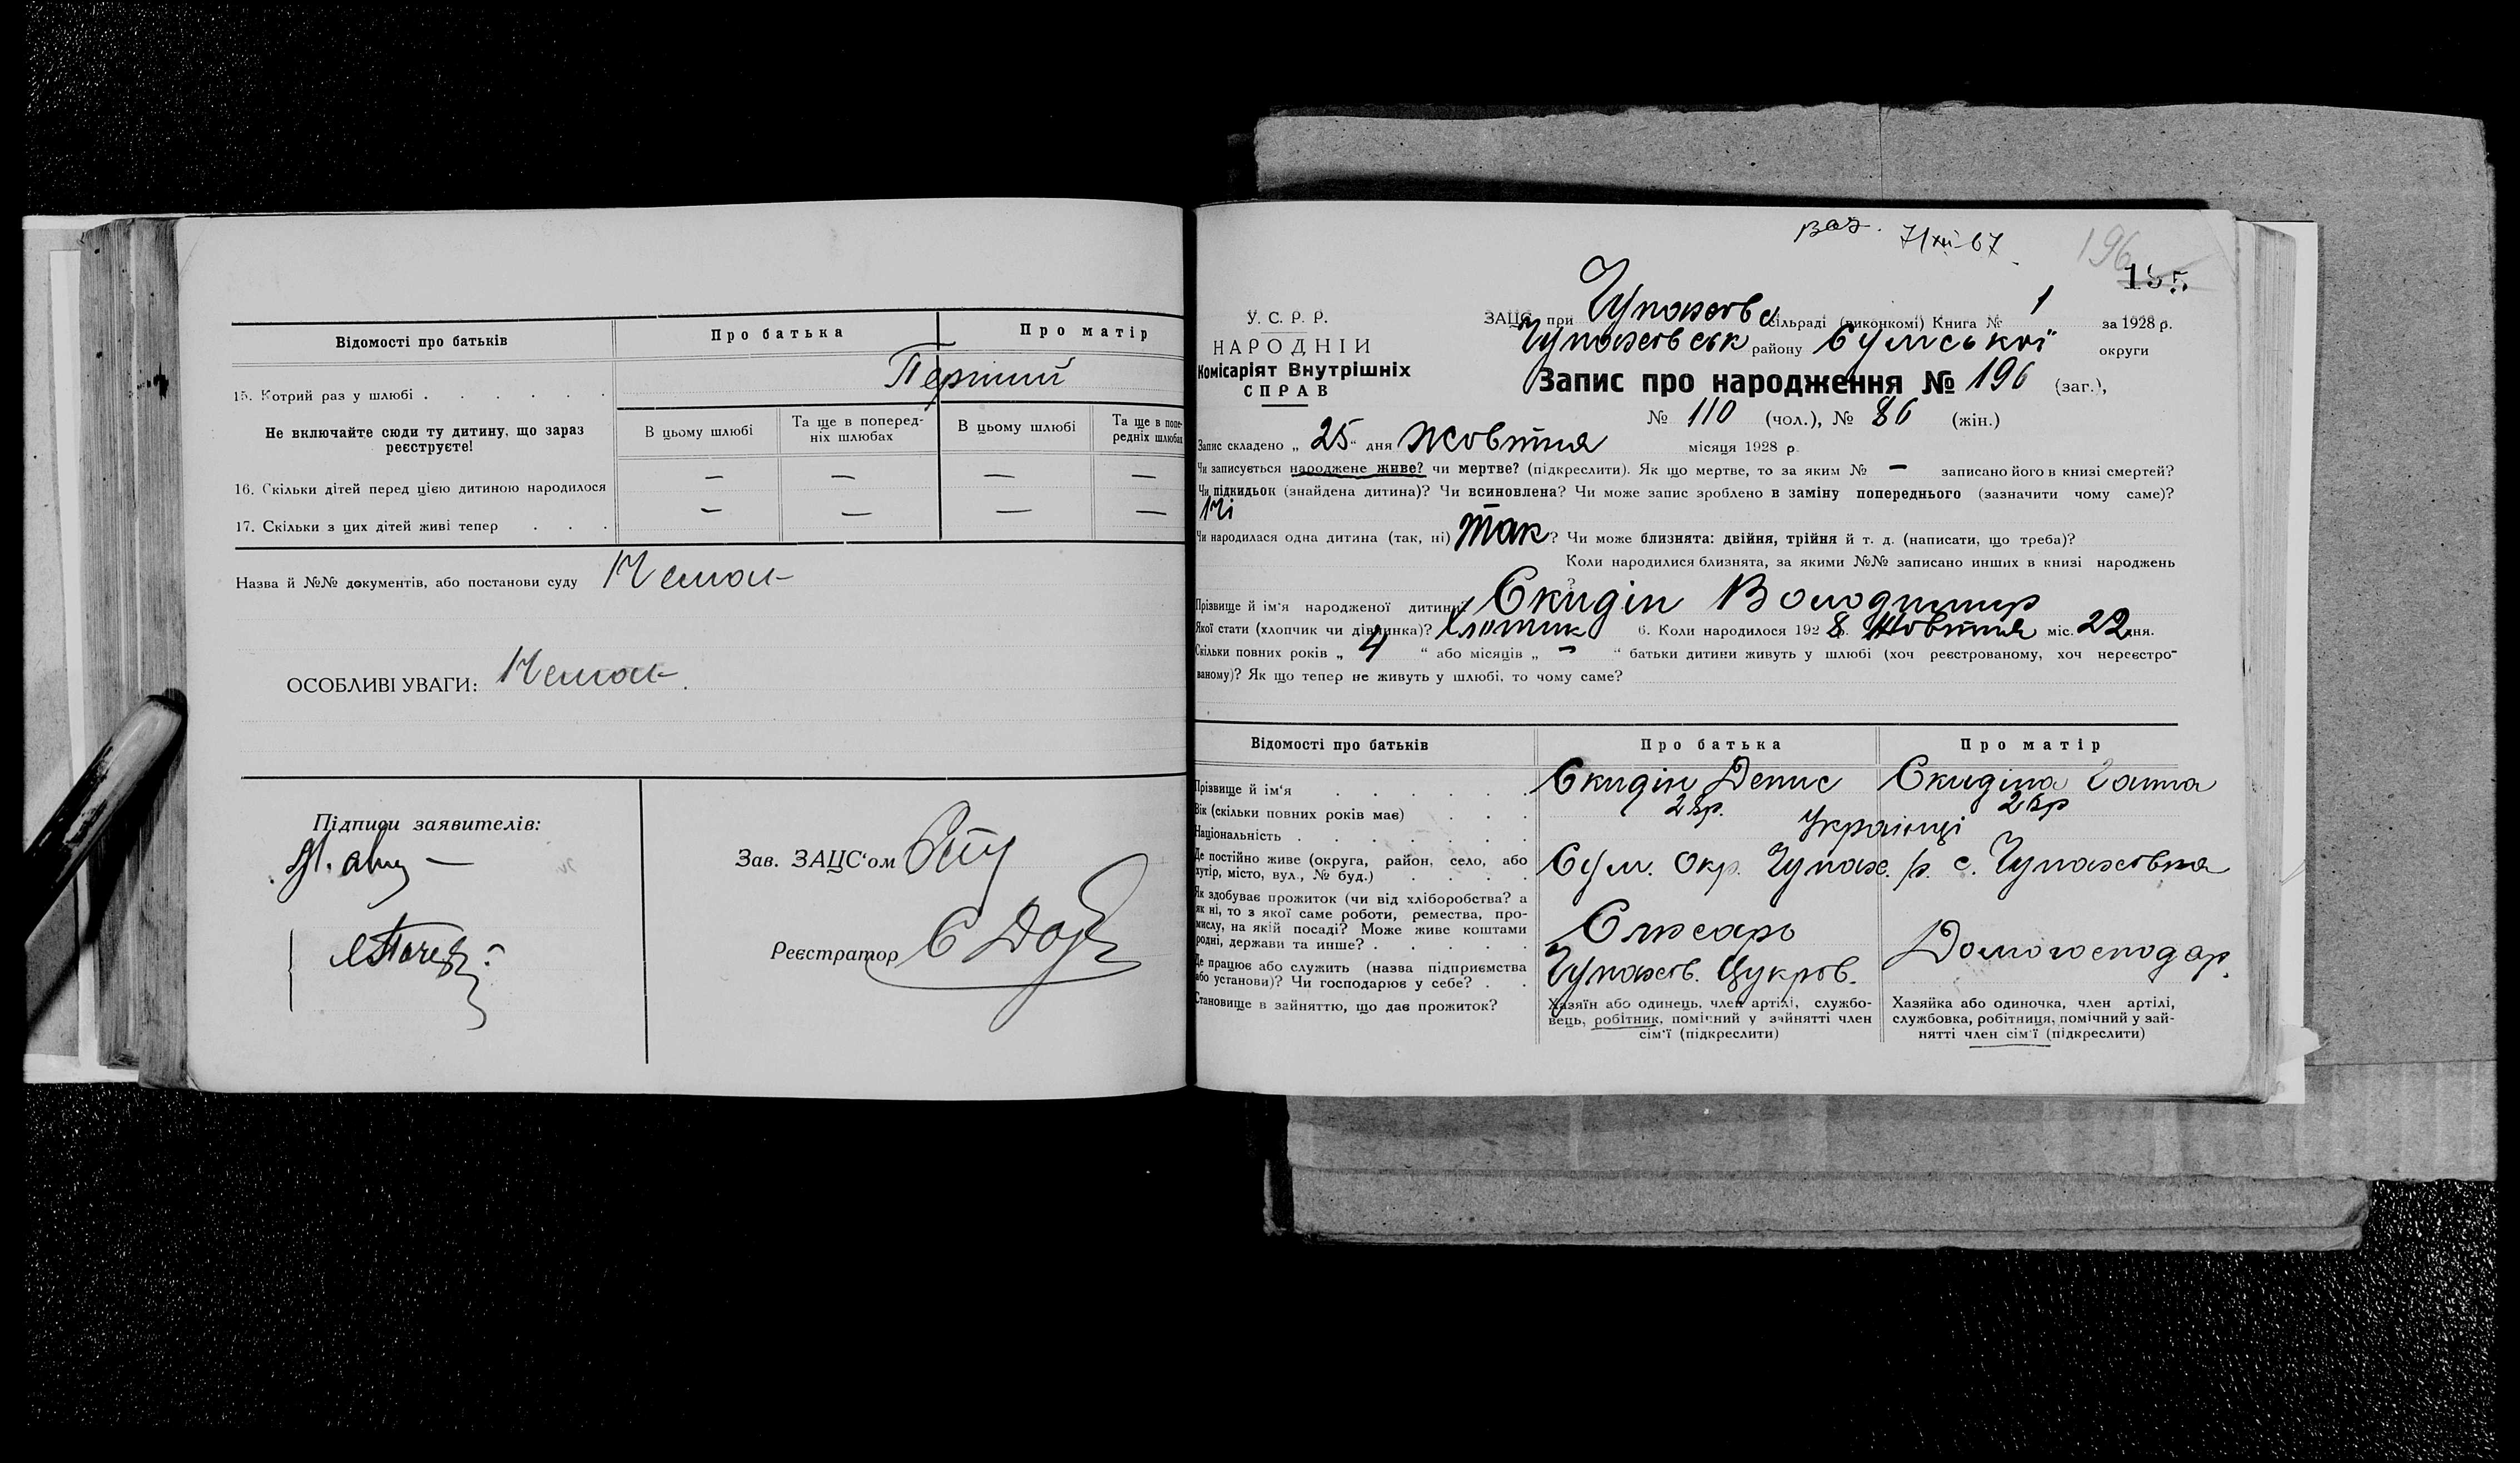 Відомості про батьків
Про батька
Про матір
15. Котрий раз у шлюбі . . . . . .
Перший
Не включайте сюди ту дитину, що зараз реєструєте!
В цьому шлюбі
Та ще в поперед-
ніх шлюбах
В цьому шлюбі
Та ще в попе-
редніх шлюбах
16. Скільки дітей перед цією дитиною народилося — — — —
17. Скільки з цих дітей живі тепер . . . — — — —
Назва й №№ документів, або постанови суду Немає
ОСОБЛИВІ УВАГИ: Немає.
Підписи заявителів:
Зав. ЗАЦС'ом
Реєстратор
7/XII-67
196
155
У. С. Р. Р.
НАРОДНІЙ
Комісаріят Внутрішніх
СПРАВ
ЗАЦС при Чупахівс сільраді (виконкомі) Книга № 1 за 1928 р.
Чупахівськ району Сумської округи
Запис про народження № 196 (заг.),
№ 110 (чол.), № 86 (жін.)
Запис складено „ 25 “ дня Жовтня місяця 1928 р.
Чи записується народжене живе? чи мертве? (підкреслити). Як що мертве, то за яким № — записано його в книзі смертей?
Чи підкидьок (знайдена дитина)? Чи всиновлена? Чи може запис зроблено в заміну попереднього (зазначити чому саме)?
Ні
Чи народилася одна дитина (так, ні) Так ? Чи може близнята: двійня, трійня й т. д. (написати, що треба)?
Коли народилися близнята, за якими №№ записано инших в книзі народжень
?
Прізвище й ім'я народженої дитини? Скидін Володимир
Якої стати (хлопчик чи дівчинка)? Хлопчик 6. Коли народилося 192 8 р. Жовтня міс. 22 дня.
Скільки повних років „ 4 “ або місяців „ — “ батьки дитини живуть у шлюбі (хоч реєстрованому, хоч нереєстро-
ваному)? Як що тепер не живуть у шлюбі, то чому саме?
Відомості про батьків
Про батька
Про матір
Прізвище й ім'я . . . . . . Скидін Денис Скидіна Ганна
Вік (скільки повних років має) . . . 28р. 26р
Національність . . . . . . . Українці
Де постійно живе (округа, район, село, або
хутір, місто, вул., № буд.) . . . .
Сум. Окр. Чупах. р. с. Чупахівка
Як здобуває прожиток (чи від хліборобства? а
як ні, то з якої саме роботи, ремества, про-
мислу, на якій посаді? Може живе коштами
родні, держави та инше? . . . . .
Слюсарь
Домогосподар.
Де працює або служить (назва підприємства
або установи)? Чи господарює у себе? . .
Чупахів. Цукров.
Становище в зайняттю, що дає прожиток?
Хазяїн або одинець, член артілі, службо-
вець, робітник, помічний у зайнятті член
сім'ї (підкреслити)
Хазяйка або одиночка, член артілі,
службовка, робітниця, помічний у зай-
нятті член сім'ї (підкреслити)